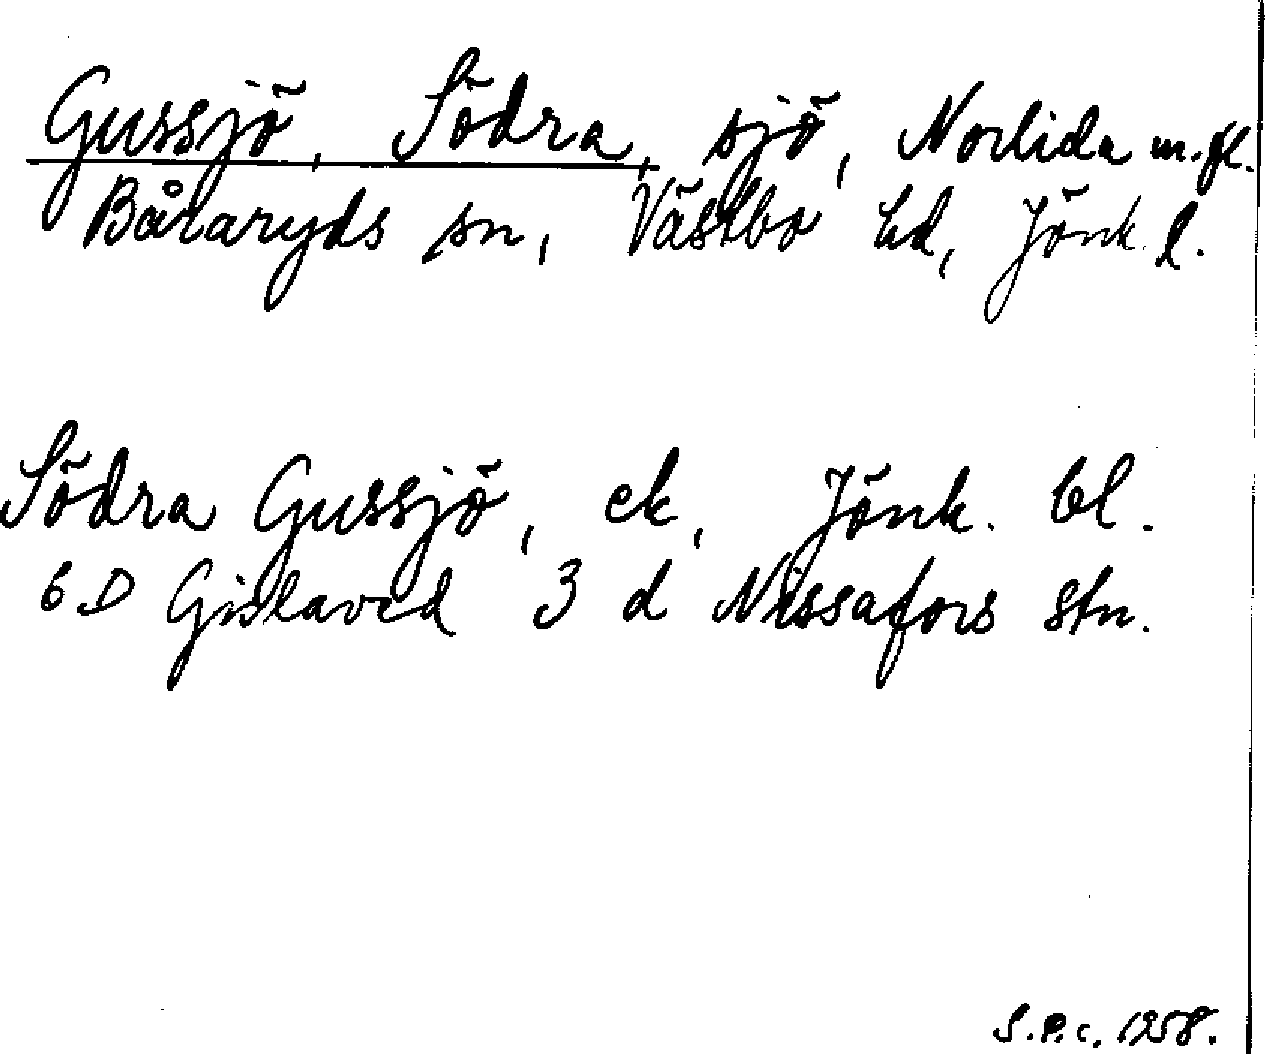 Gussjö, Södra, sjö, Norlida m.fl.
Båraryds sn, Västbo hd, Jönk. l.
Södra Gussjö, ek, Jönk. bl.
6 D Gislaved 3 d Nissafors stn.
S.P.c, 1958.